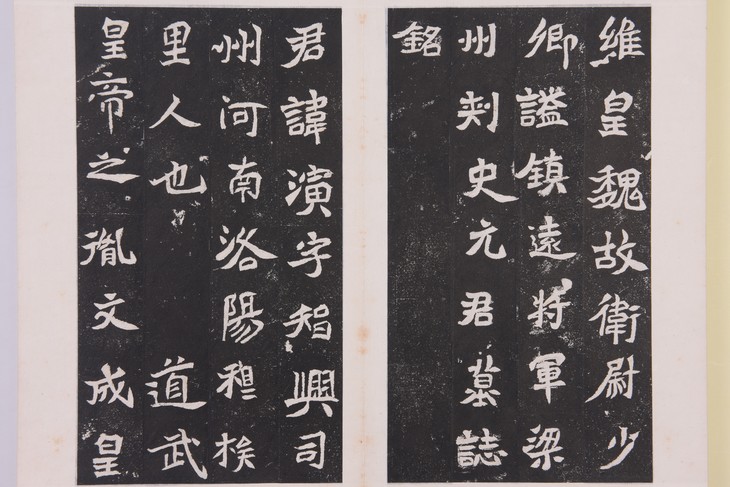 維皇魏故衛尉少
卿謚鎮遠將軍梁
州刾史元君墓誌
銘
君諱演字智興司
州河南洛陽穆族
里人也 道武
皇帝之胤文成皇